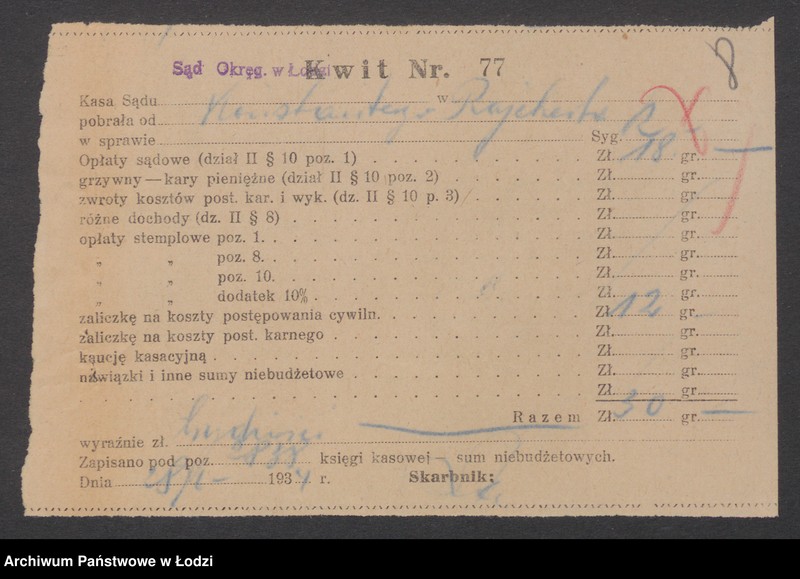 8
Sąd Okręg. w Łodzi Kwit Nr. 77
Kasa Sądu w
pobrała od Konstantego
w sprawie Syg.
Opłaty sądowe (dział II § 10 poz. 1) Zł. 18 gr. —
grzywny — kary pieniężne (dział II § 10 poz. 2) Zł. gr.
zwroty kosztów post. kar. i wyk. (dz. II § 10 p. 3) Zł. gr.
różne dochody (dz. II § 8) Zł. gr.
opłaty stemplowe poz. 1. Zł. gr.
„ „ poz. 8. Zł. gr.
„ „ poz. 10. Zł. gr.
„ „ dodatek 10% Zł. gr.
zaliczkę na koszty postępowania cywiln. Zł. 12 gr.
zaliczkę na koszty post. karnego Zł. gr.
kaucję kasacyjną Zł. gr.
nawiązki i inne sumy niebudżetowe Zł. gr.
Zł. gr.
Razem Zł. 30 gr. —
wyraźnie zł.
Zapisano pod poz. księgi kasowej — sum niebudżetowych.
Dnia 1934 r. Skarbnik:
Archiwum Państwowe w Łodzi